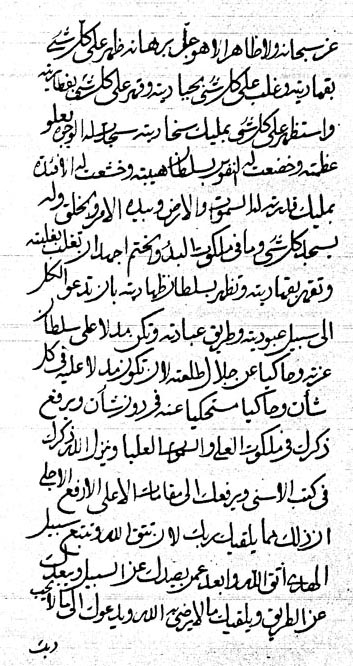 عز سبحانه ولا ظاهرا الا هو علی برهانه ظهر علی كل شئ
بقهاريته وغلب علی كل شئ بجباريته وقهر علی كل شئ بقهاريته
واستظهر علی كل شئ بمليك سخاريته سجدت له الوجوه بعلو
عظمته وخضعت له النفوس بسلطان هيبته وخشعت له الافئدة
بمليك قدرته له السموات والارض وبيده الامر والخلق وله
يسجد كل شئ وما في ملكوت البدء والختم اجهد ان تغلب بغلبته
وتقهر بقهاريته وتظهر بسلطان ظهاريته بان تدعون الكل
الی سبيل عبوديته وطريق عبادته وتكن مدلا علی سلطان
عزته وحاكيا عن جلال طلعته لان تكون مدلا عليه في كل
شأن وحاكيا مستحكيا عنه في دون شأن ويرفع
ذكرك في ملكوت العلی والسموات العليا وينزل الله ذكرك
في كتب الاسنی ويرفعك الی مقامات الاعلی الارفع الاجلی
الا ذلك مما يلقيك ربك لان تتق الله وتتبع سبيل
الهدی اتق الله وابعد عمن يصدك عن السبيل ويبعدك
عن الطريق ويلقيك ما لا يرضی به الله ويدعوك الی ما لا يحب